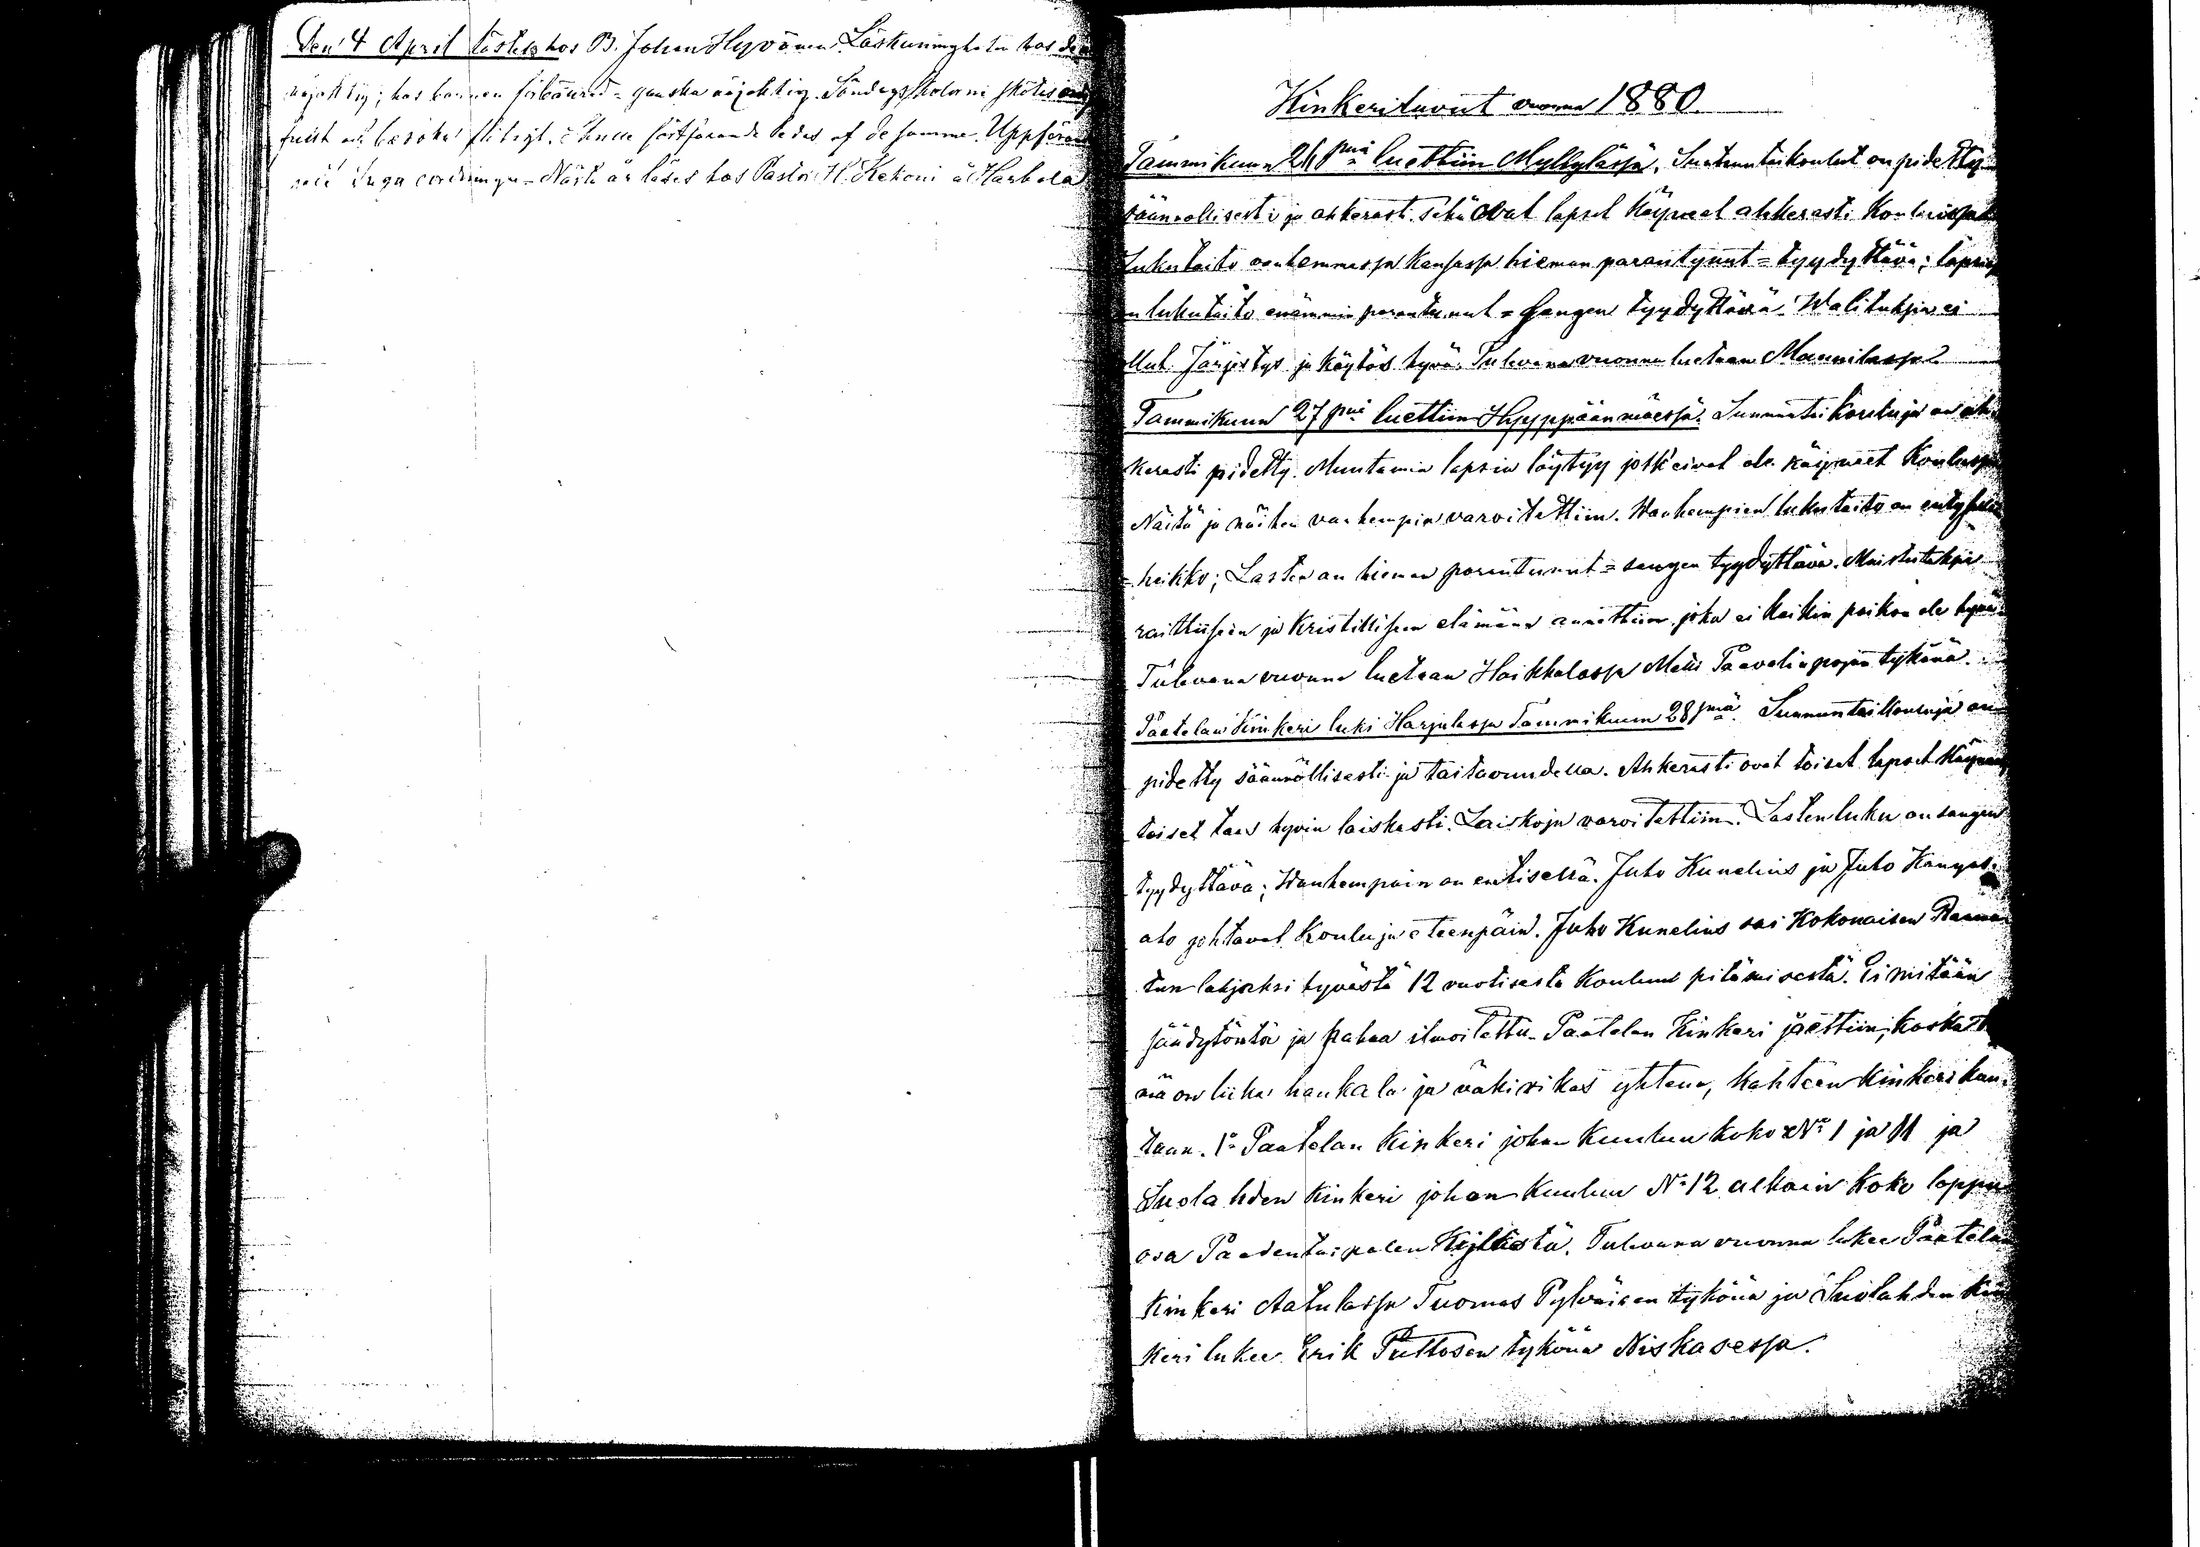 Den 4 April lästes hos B. Johan Hyvönen. Läskunnigheten hos de
nöjaktig; hos barnen förbättrad = ganska nöjaktig. Söndagsskolorna skötas
och besökas flitigt. fortfarande ledas af de samma. Uppföran
Inga ordningen = Näste år läses hos Pastor H. Kekoni å Harbola
Kinkeriluvut vuonna 1880.
Tammikuun 26 pnä luettiin Myllylässä. Sunnuntaikoulut on pidetty
säännöllisesti ja ahkerasti sekä ovat lapset käyneet ahkerasti kouluissa
Lukutaito vanhemmassa kansassa hieman parantunut = tyydyttävä; lapsis
n lukutaito enämmin parantunut = sangen tyydyttävä. Walituksia ei
ollut. Järjestys ja käytös hyvä. Tulevana vuonna luetaan Mannilassa
Tammikuun 27 pnä luettiin Hyyppäänmäessä. Sunnuntai kouluja on ah
kerasti pidetty. Muutamia lapsia löytyy jotk'eivat ole käyneet koulussa
Näitä ja näiden vanhempia varoitettiin. Wanhempien lukutaito on entisellä
= heikko; Lasten on hieman parantunut = sangen tyydyttävä. Muistutuksia
raittiiseen ja kristilliseen elämään annettiin joka ei kaikin paikoin ole hyvä.
Tulevana vuonna luetaan Haikkalassa Matti Paavalinpojan tykönä.
Päätelan Kinkeri luki Harjulassa Tammikuun 28 pnä. Sunnuntaikouluja on
pidetty säännöllisesti ja taitavuudella. Ahkerasti ovat toiset lapset käyneet,
toiset taas hyvin laiskasti. Laiskoja varoitettiin. Lasten luku on sangen
tyydyttävä; Wanhempain on entisellä. Juho Kunelius ja Juho Kangas-
aho johtavat kouluja eteenpäin. Juho Kunelius sai kokonaisen Raama-
tun lahjaksi hyvästä 12 vuotisesta koulun pitämisestä. Ei mitään
säädytöntä ja pahaa ilmoitettu. Päätelan Kinkeri jaettiin, koska t
mä on liika hankala ja väkirikas yhtenä, kahteen kinkerikun-
taan. 1o Päätelan Kinkeri johon kuuluu koko No 1 ja 11 ja
Suolahden Kinkeri johon kuuluu No 12 alkain koko loppu
osa Paadentaipaleen Kylästä. Tulevana vuonna lukee Päätelan
Kinkeri Aatulassa Tuomas Pylväisen tykönä ja Suolahden Kin
keri lukee Erik Puttosen tykönä Niskasessa.